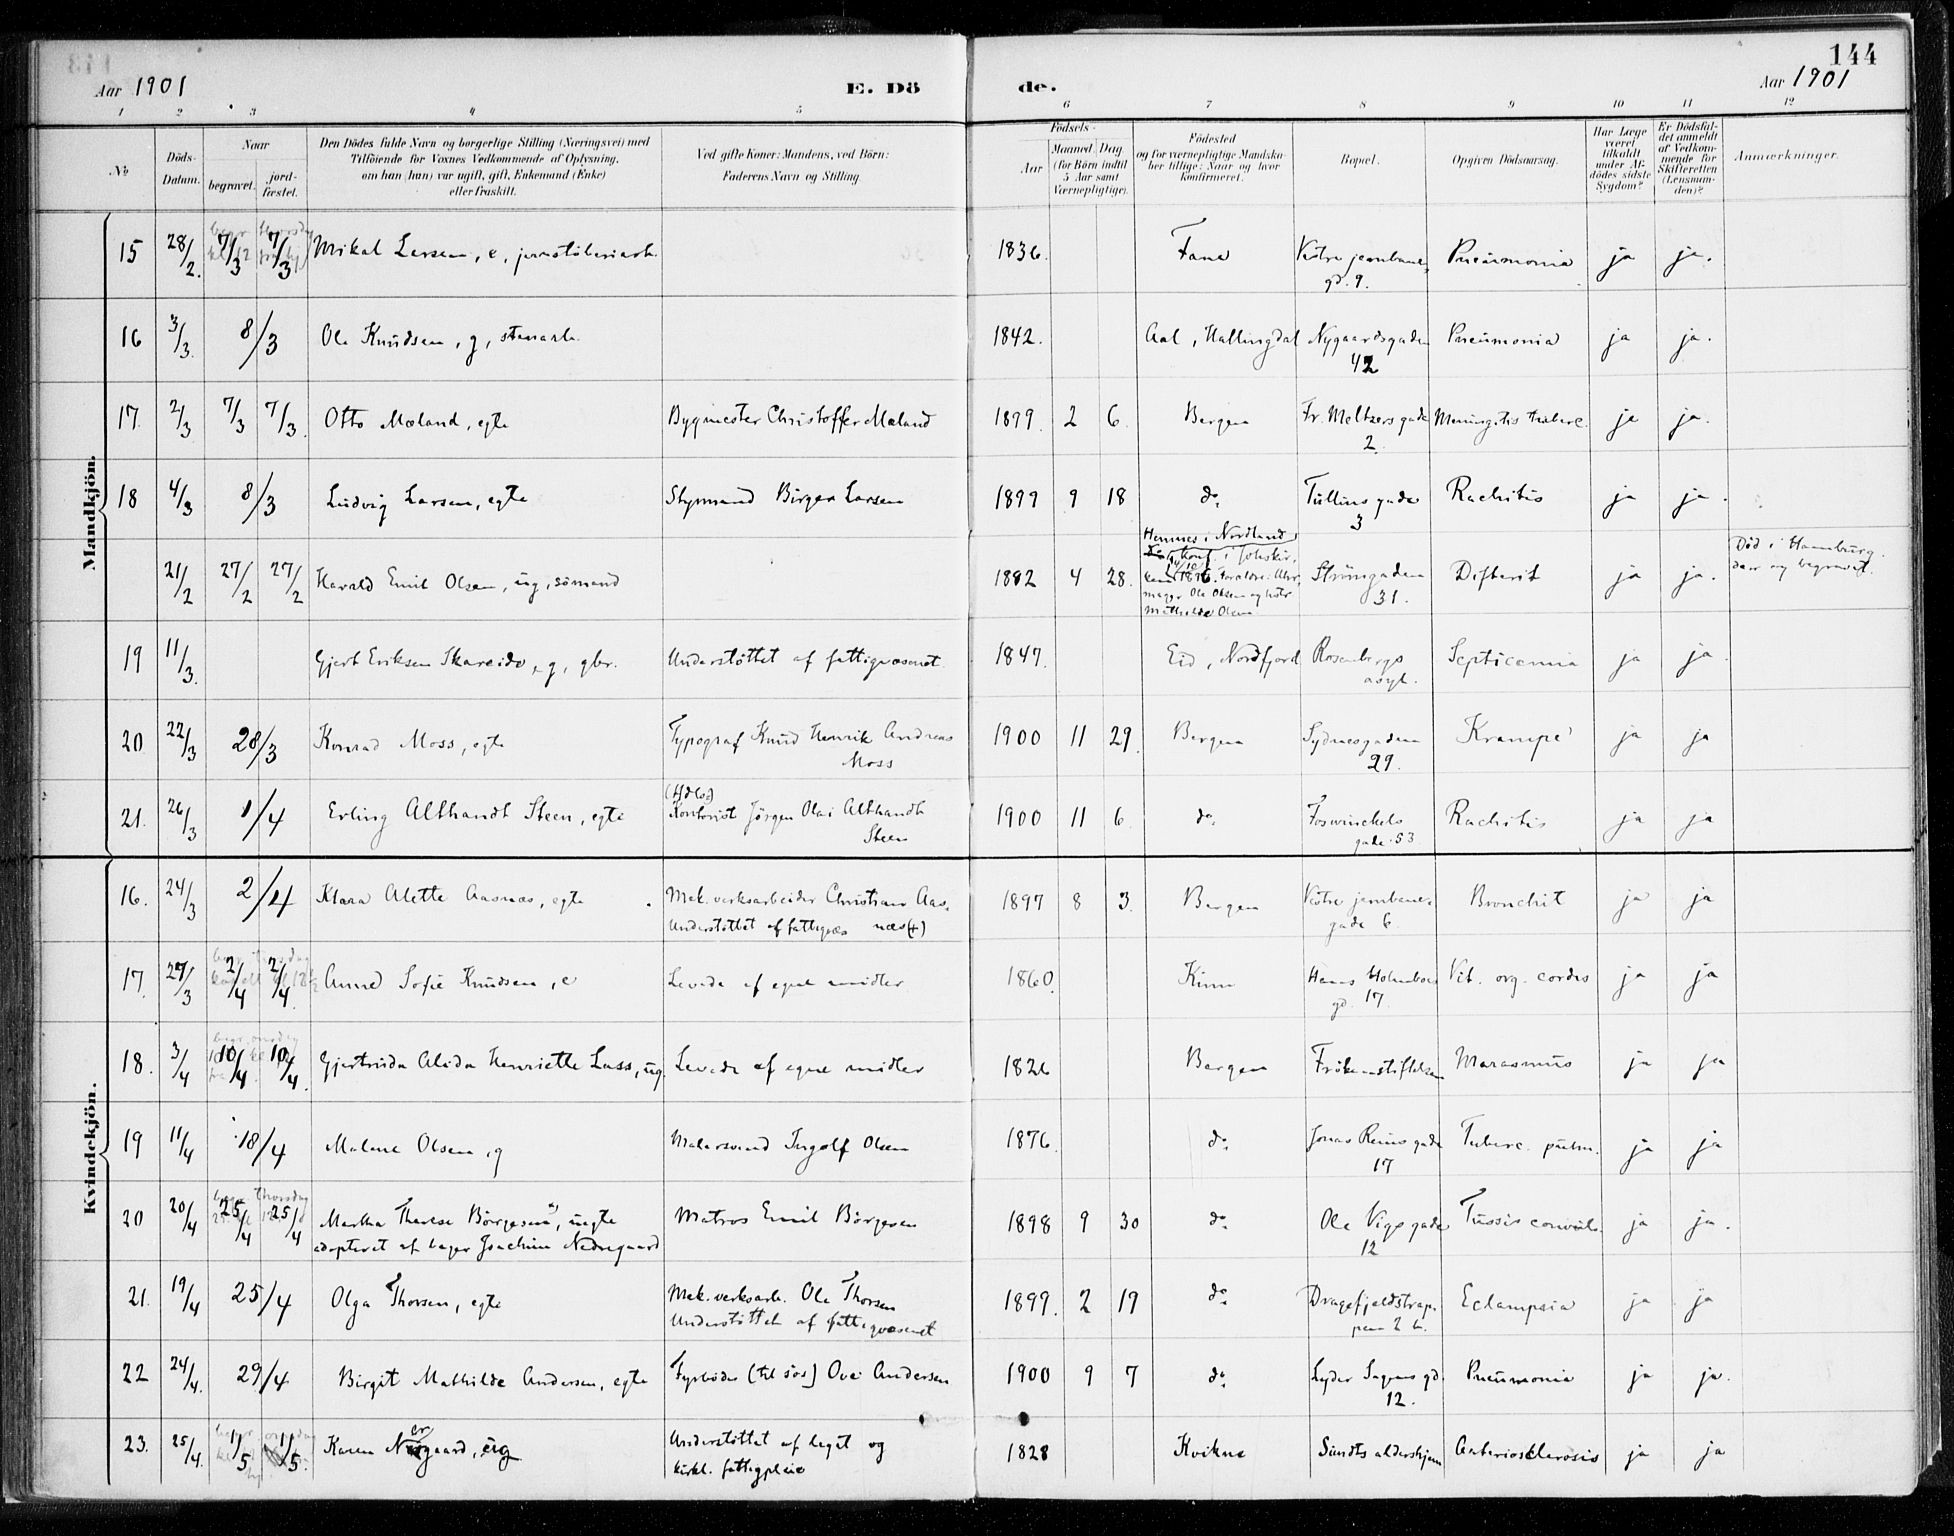 144
Aar 1901 E. Dö de. Aar 1901
1 2 3 4 5 6 7 8 9 10 11 12
№ Döds-Datum. Naar begravet. jordfæstet. Den Dödes fulde Navn og borgerlige Stilling (Næringsvei) med Tilföiende for Voxnes Vedkommende af Oplysning, om han (hun) var ugift, gift, Enkemand (Enke) eller fraskilt. Ved gifte Koner: Mandens, ved Börn: Faderens Navn og Stilling. Födsels- Aar Maaned. Dag. (for Börn indtil 5 Aar samt Værnepligtige). Födested og for værnepligtige Mandskaber tillige: Naar og hvor konfirmeret. Bopæl. Opgiven Dödsaarsag. Har Læge været tilkaldt under Afdödes sidste Sygdom? Er Dödsfaldet anmeldt af Vedkommende for Skifteretten (Lensmanden)? Anmærkninger.
Mandkjön.
15 28/2. 7/3 7/3 Mikal Larsen, e, jernstöberiarb. 1836. Fana Vestre jernbane gd. 9. Pneumonia ja ja.
16 3/3. 8/3 Ole Knudsen, g, stenarb. 1842. Aal, Hallingdal Nygaardsgaden 42 Pneumonia ja ja.
17. 2/3 7/3 7/3. Otto Mæland, egte Bygmester Christoffer Mæland 1899. 2 6. Bergen Fr. Meltzers gade 2. Meningitis tuberc. ja ja.
18 4/3 8/3 Ludvig Larsen, egte Styrmand Birger Larsen 1899 9 18 do. Tullins gade 3 Rachitis ja ja.
21/2 27/2 27/2 Harald Emil Olsen, ug, sömand 1882 4 28. Hemnes i Nordland, konf. i Johskir. 1896. Forældre: Uhrmager Ole Olsen og hustr Mathilde Olsen Strömgaden 31. Difterit ja ja. Död i Hamburg. der og begravet.
19 11/3. Gjert Eriksen Skareide, g, gbr. Understöttet af fattigvæsenet. 1847. Eid, Nordfjord Rosenbergs asyl. Septicemia ja ja.
20 22/3 28/3 Konrad Moss, egte Typograf Knud Henrik Andreas Moss 1900 11 29. Bergen Sydnesgaden 29. Krampe ja ja
21. 26/3 1/4 Erling Althandt Steen, egte Kontorist Jörgen Olai Althandt Steen 1900 11 6. do. Foswinckels gade 53 Rachitis ja ja
Kvindekjön.
16. 24/3 2/4 Klara Alette Aasnæs, egte Mek. verksarbeider Christian Aasnæs(+) Understöttet af fattigvæs 1897 8 3. Bergen Vestre jernbanegade 6 Bronchit ja ja
17. 27/3 2/4 2/4. Anne Sofie Knudsen, e Levede af egne midler 1860. Kinn Hans Holmboes gd. 17. Vit. org. cordis ja ja
18. 3/4 10/4 10/4. Gjertrude Alida Henriette Lass, ug. Levede af egne midler 1826 Bergen Frökenstiftelsen Marasmus ja ja
19 11/4 18/4 Malene Olsen, g Malersvend Ingolf Olsen 1876. do. Jonas Reins gade 17 Tuberc. pulm. ja ja
20 20/4 25/4 25/4 Martha Therese Börgesen, uegte adopteret af bager Joachim Nedregaard Matros Emil Börgesen 1898 9 30 do. Ole Vigs gade 12 Tussis convuls. ja ja.
21. 19/4 25/4 Olga Thorsen, egte Mek. verksarb. Ole Thorsen Understöttet af fattigvæsenet 1899. 2 19 do. Dragefjeldstrappen 2 b. Eclampsia ja ja
22 24/4. 29/4 Birgit Mathilde Andersen, egte Fyrböder (til sös) Ove Andersen 1900 9 7 do. Lyder Sagens gd. 12. Pneumonia ja ja.
23. 25/4. 1/5 1/5. Karen Nergaard, ug Understöttet af legat og kirkl. fattigpleie 1828 Kvikne Sundts aldershjem Arteriosklerosis ja ja